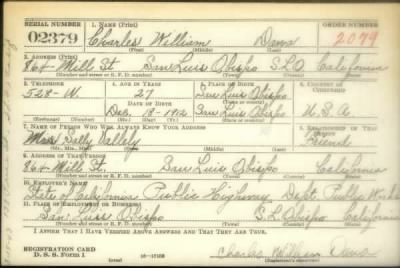 SERIAL NUMBER 1. NAME (Print) ORDER NUMBER
02379 Charles William Davis 2079
(First) (Middle) (Last)
2. ADDRESS (Print)
864 Mill St. San Luis Obispo S.L.O California
(Number and street or R. F. D. number) (Town) (County) (State)
3. TELEPHONE 4. AGE IN YEARS 5. PLACE OF BIRTH 6. COUNTRY OF CITIZENSHIP
528-W. 27 San Luis Obispo
DATE OF BIRTH (Town or county)
Dec. 18 - 1912 San Luis Obispo U.S.A
(Exchange) (Number) (Mo.) (Day) (Yr.) (State or country)
7. NAME OF PERSON WHO WILL ALWAYS KNOW YOUR ADDRESS 8. RELATIONSHIP OF THAT PERSON
Sally Friend
(Mr., Mrs., Miss) (First) (Middle) (Last)
9. ADDRESS OF THAT PERSON
864 Mill St. San Luis Obispo California
(Number and street or R. F. D. number) (Town) (County) (State)
10. EMPLOYER'S NAME
State of California Public Highway Dept. Public Works
11. PLACE OF EMPLOYMENT OR BUSINESS
San Luis Obispo S.L.Obispo California
(Number and street or R. F. D. number) (Town) (County) (State)
I AFFIRM THAT I HAVE VERIFIED ABOVE ANSWERS AND THAT THEY ARE TRUE.
REGISTRATION CARD
D. S. S. Form 1 (over) Charles William Davis
(Registrant's signature)